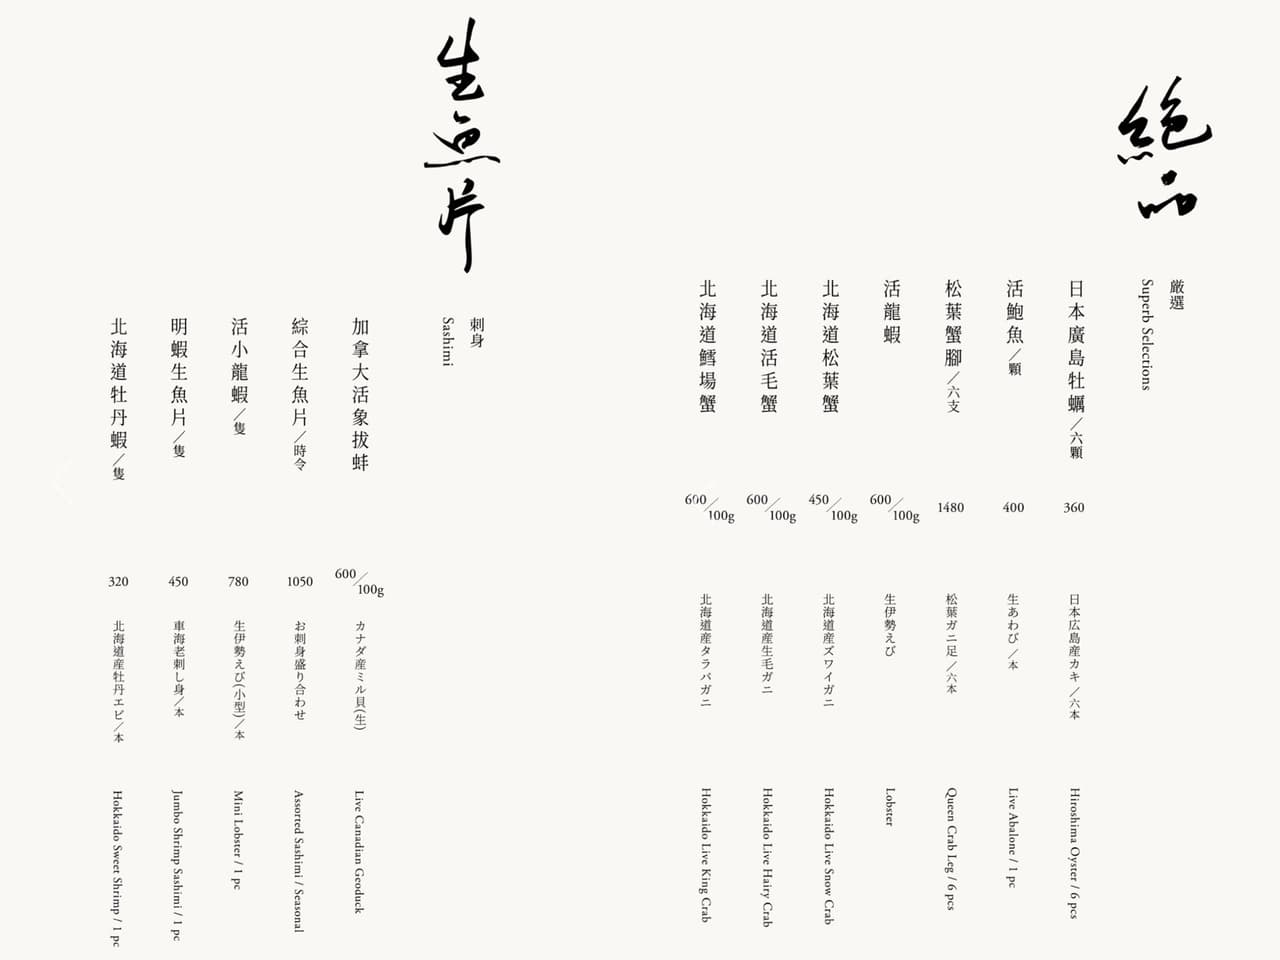 絕品
厳選
Superb Selections
日本廣島牡蠣／六顆
360
日本広島産カキ／六本
Hiroshima Oyster / 6 pcs
活鮑魚／顆
400
生あわび／本
Live Abalone / 1 pc
松葉蟹腳／六支
1480
松葉ガニ足／六本
Queen Crab Leg / 6 pcs
活龍蝦
600／100g
生伊勢えび
Lobster
北海道松葉蟹
450／100g
北海道産ズワイガニ
Hokkaido Live Snow Crab
北海道活毛蟹
600／100g
北海道産生毛ガニ
Hokkaido Live Hairy Crab
北海道鱈場蟹
600／100g
北海道産タラバガニ
Hokkaido Live King Crab
生魚片
刺身
Sashimi
加拿大活象拔蚌
600／100g
カナダ産ミル貝(生)
Live Canadian Geoduck
綜合生魚片／時令
1050
お刺身盛り合わせ
Assorted Sashimi / Seasonal
活小龍蝦／隻
780
生伊勢えび(小型)／本
Mini Lobster / 1 pc
明蝦生魚片／隻
450
車海老刺し身／本
Jumbo Shrimp Sashimi / 1 pc
北海道牡丹蝦／隻
320
北海道産牡丹エビ／本
Hokkaido Sweet Shrimp / 1 pc